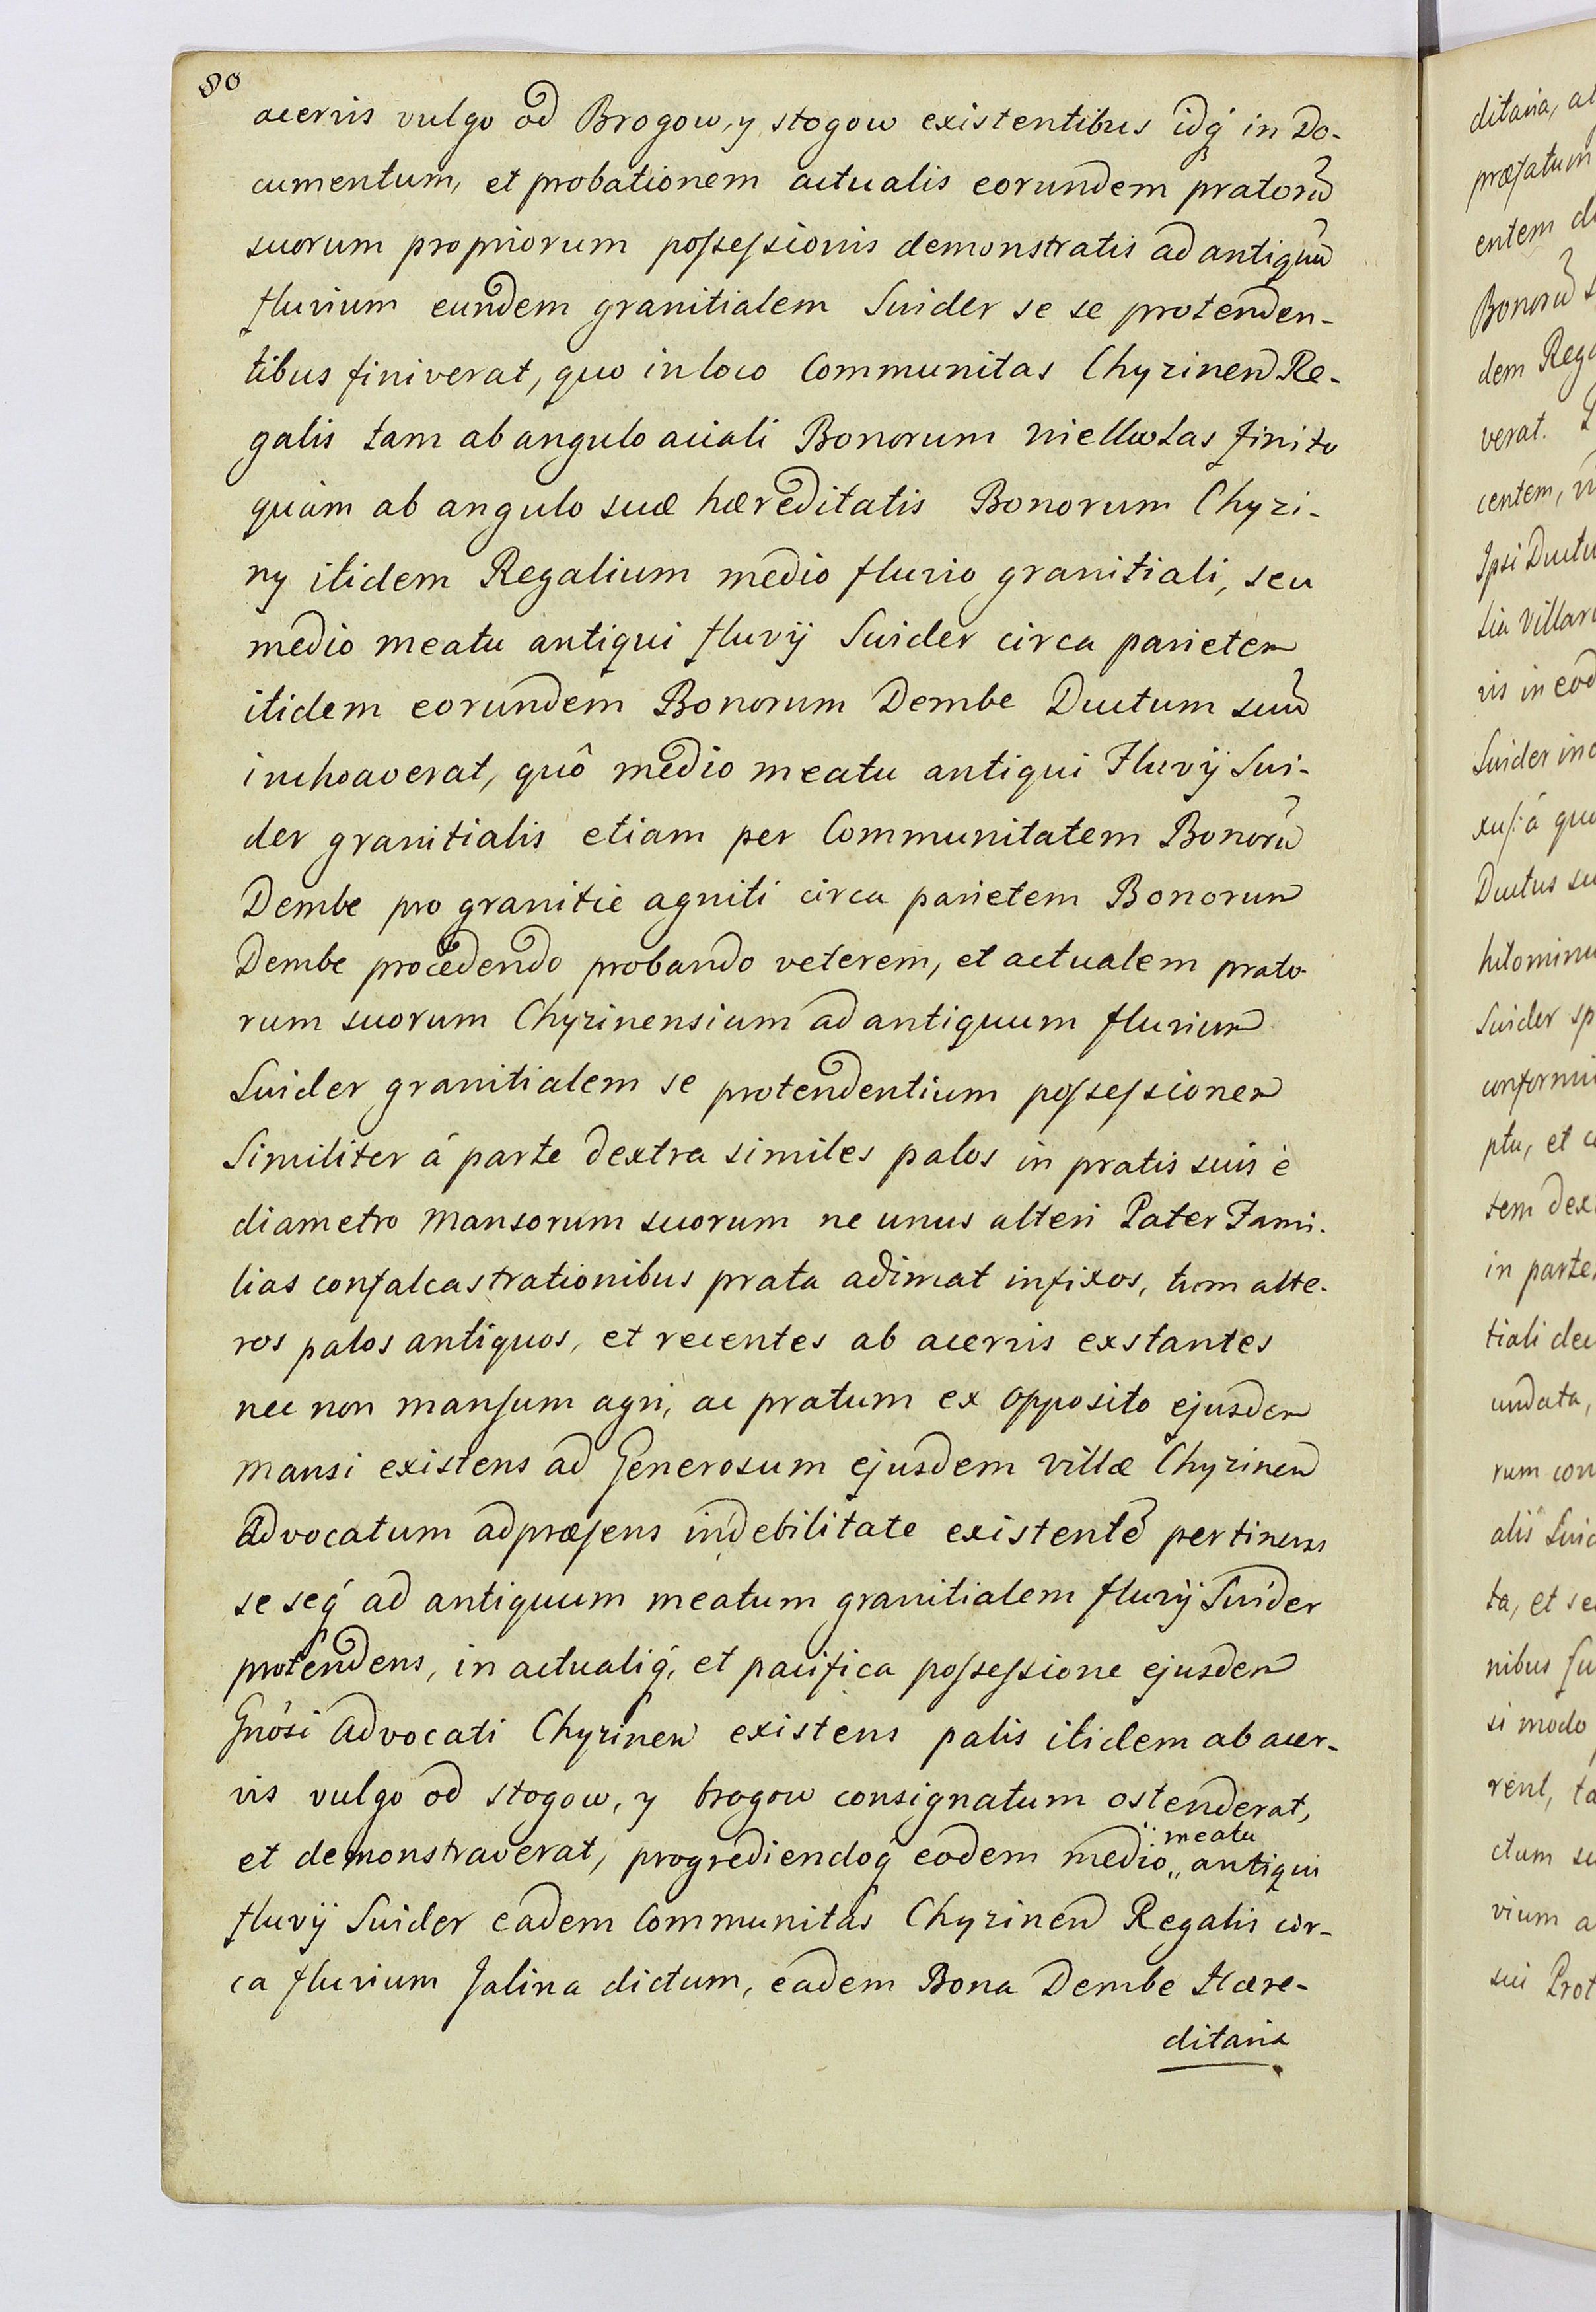 80
acervis vulgo od Brogow, y stogow existentibus idq́ in Do-
cumentum, et probationem actualis eorundem pratorũ
suorum propriorum possessionis demonstratis ad antiquũ
fluvium eundem granitialem Swider se se protenden-
tibus finiverat, quo in loco Communitas Chyzinen Re-
galis tam ab angulo aciali Bonorum Wiellolas finito
quàm ab angulo suæ hæreditatis Bonorum Chyzi-
ny itidem Regalium medio fluvio granitiali, seu
medio meatu antiqui fluvÿ Swider circa parietem
itidem eorundem Bonorum Dembe Ductum suũ
inchoaverat, quô medio meatu antiqui Fluvÿ Swi-
der granitialis etiam per Communitatem Bonorũ
Dembe pro granitie agniti circa parietem Bonorum
Dembe procedendo probando veterem, et actualem prato-
rum suorum Chyzinensium ad antiquum fluvium
Swider granitialem se protendentium possessionem
Similiter á parte dextra similes palos in pratis suis è
diametro Mansorum suorum ne unus alteri Pater Fami-
lias confalcastrationibus prata adimat infixos, tum alte-
ros palos antiquos, et recentes ab acervis exstantes
nec non mansum agri, ac pratum ex opposito ejusdem
Mansi existens ad Generosum ejusdem villæ Chyzinen
Advocatum ad præsens in debilitate existentẽ pertinens
se seq́ ad antiquum meatum granitialem fluvÿ Swider
protendens, in actualiq́, et pacifica possessione ejusdem
Gnôsi Advocati Chyzinen existens palis itidem ab acer-
vis vulgo od stogow, y brogow consignatum ostenderat,
et demonstraverat, progrediendoq́ eodem medio „ meatu antiqui
fluvÿ Swider eadem Communitas Chyzinen Regalis cir-
ca fluvium Jalina dictum, eadem Bona Dembe Hære-
ditaria
ditaria, a
præsatum
entem d
Bonorũ s
dem Rega
verat.
centem,
Ipsi Ductu
tia Villar
vis in eod
Swider inc
á quo
Ductus su
Swider sp
ptu, et
tem dex
in parte,
tiali dec
undata,
rum con
alis Swid
ta, et se
nibus su
si modo
rent, ta
ctum su
vium a
sui Prot